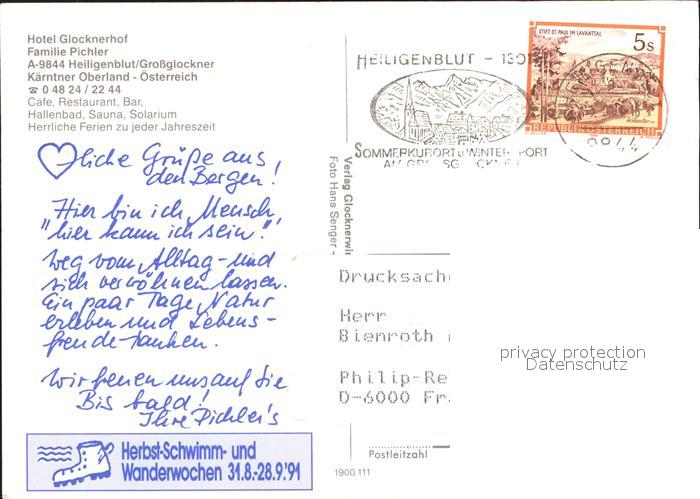 Hotel Glocknerhof
Familie Pichler
A-9844 Heiligenblut/Großglockner
Kärntner Oberland - Österreich
☎ 0 48 24 / 22 44
Cafe, Restaurant, Bar,
Hallenbad, Sauna, Solarium
Herrliche Ferien zu jeder Jahreszeit
♡liche Grüße aus
den Bergen!
Hier bin ich Mensch,
"hier kann ich sein".
Weg vom Alltag - und
sich verwöhnen lassen.
Ein paar Tage Natur
erleben und Lebens-
freude tanken.
Wir freuen uns auf Sie
Bis bald!
Ihre Pichler's
Herbst-Schwimm- und
Wanderwochen 31.8.-28.9.'91
HEILIGENBLUT - 1301
SOMMERKURORT u WINTERSPORT
STIFT ST. PAUL IM LAVANTTAL
5s
REPUBLIK ÖSTERREICH
9844
Verlag Glocknerwi
Foto Hans Senger
Drucksach
Herr
Bienroth
Philip-Re
D-6000 Fr
Postleitzahl
1900.111
privacy protection
Datenschutz